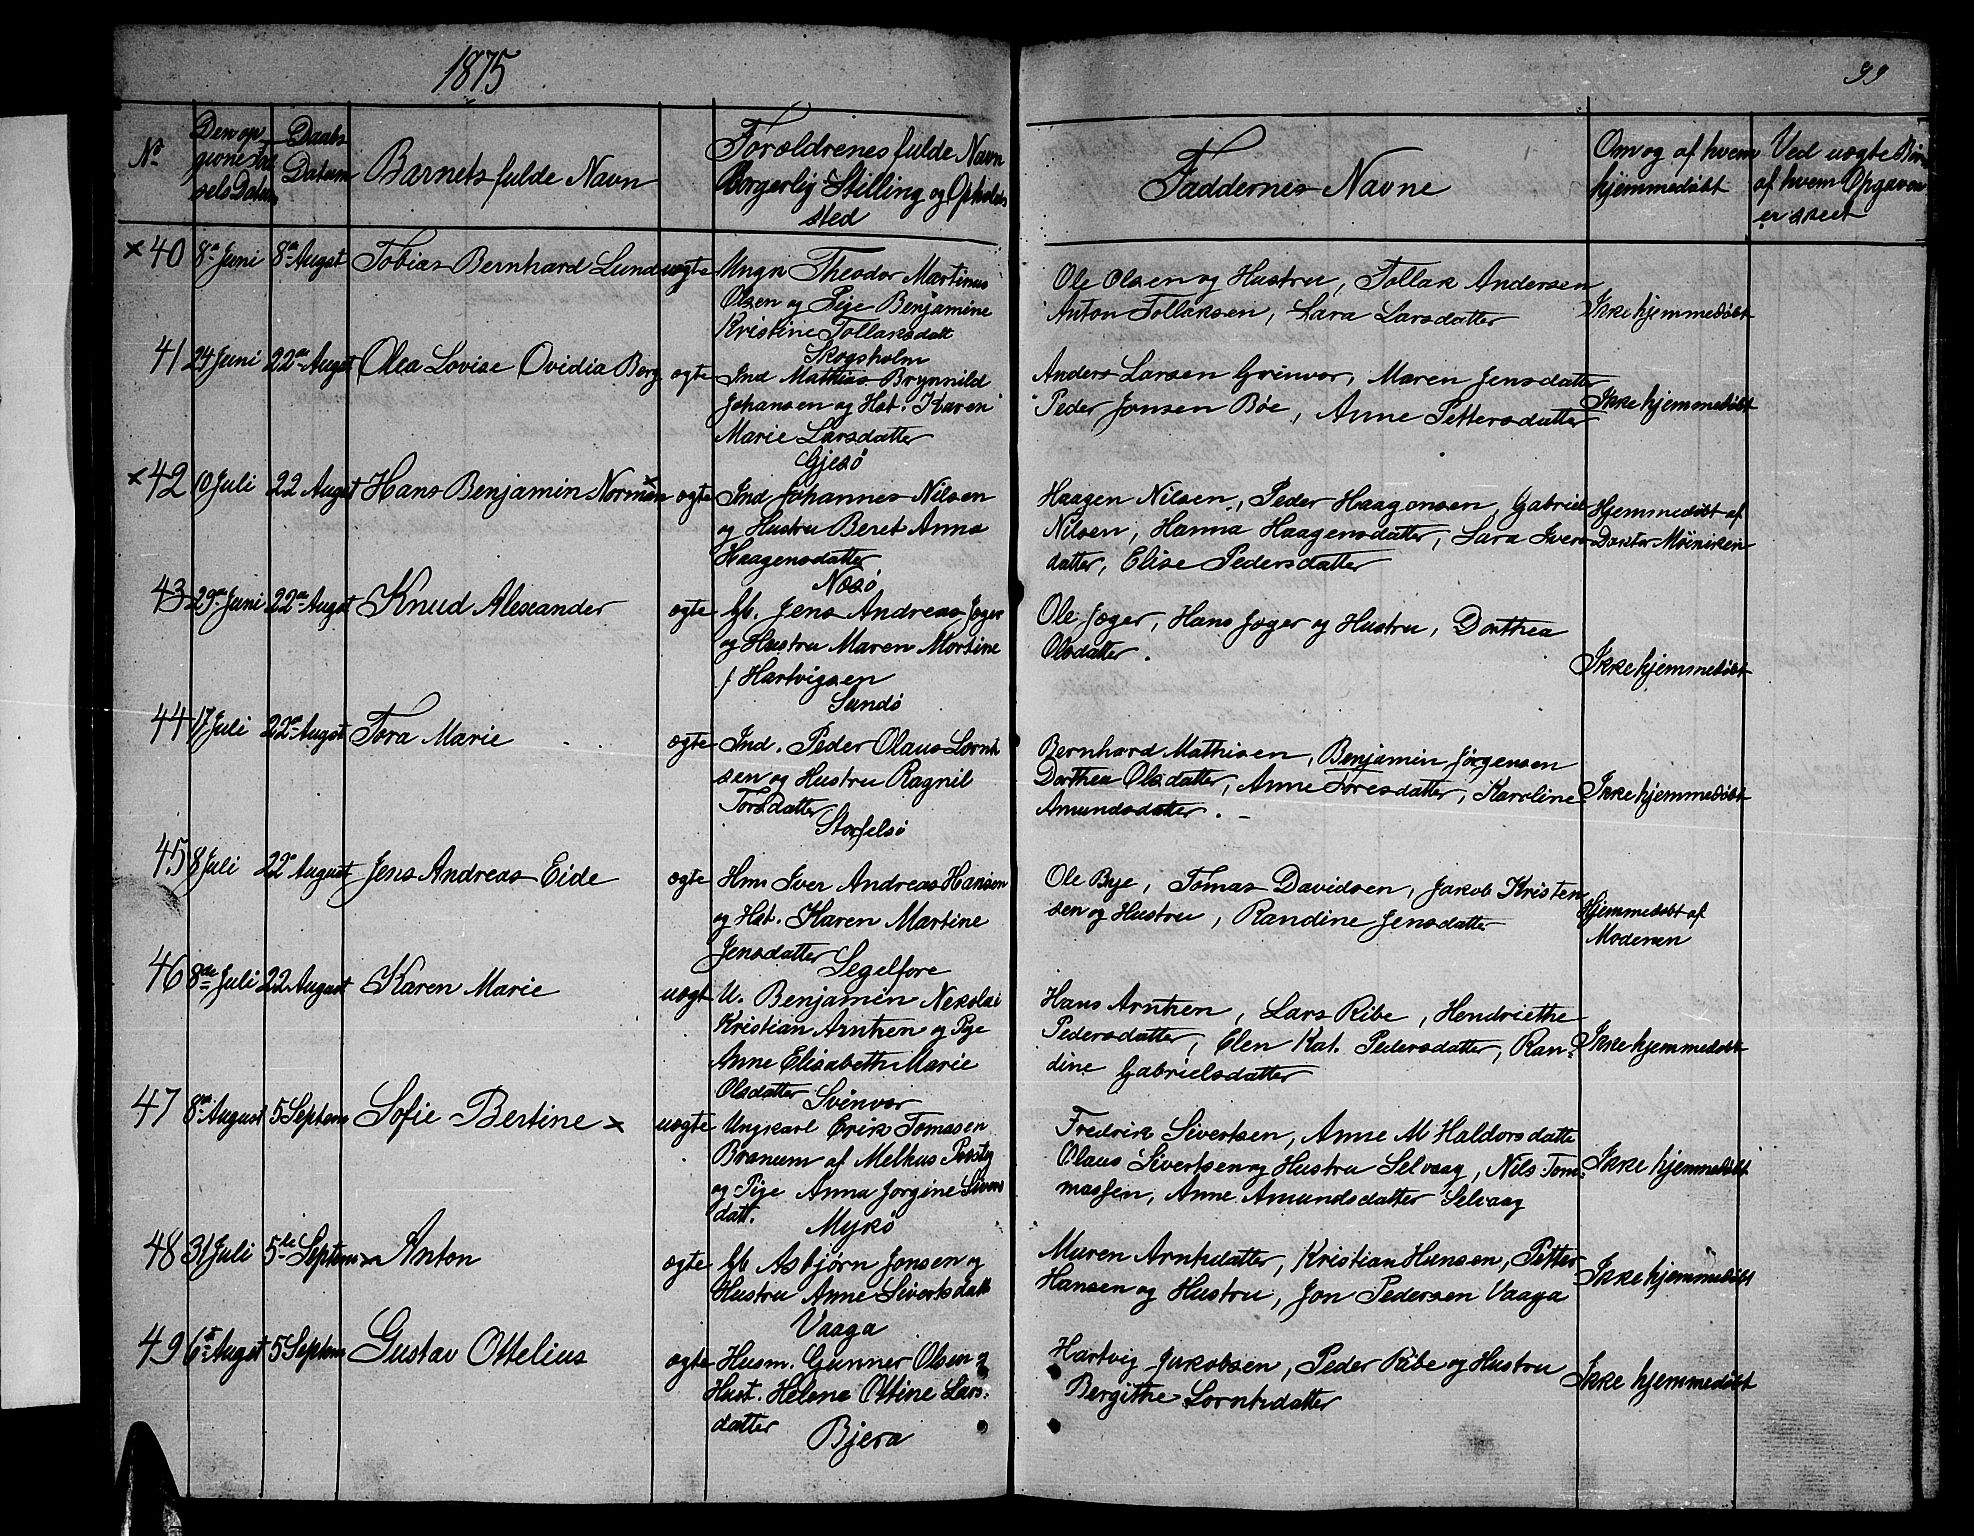 1875
99
No
Den opgivne Fødselsdatum
Daabs Datum
Barnets fulde Navn
Forældrenes fulde Navn
Borgerlig Stilling og Opholds
sted
Faddernes Navne
Om og af hvem
hjemmedøbt
Ved uægte Børn
af hvem Opgaven
er skeet
× 40 8de Juni 8de Augst Tobias Bernhard Lund uægte Ungk Theodor Martinus
Olsen og Pige Benjamine
Kristine Tollaksdatt
Skogsholm
Ole Olsen og Hustru, Tollak Andersen
Anton Tollaksen, Lara Larsdatter
Ikke hjemmedøbt
41 24 Juni 22de Augst Olea Lovise Ovidia Berg ægte Ind Mathias Brynnild
Johansen og Hst. Karen
Marie Larsdatter
Gjesø
Anders Larsen Grinvor, Maren Jensdatter
Peder Jonsen Bøe, Anne Pettersdatter
Ikke hjemmedøbt
× 42 10 Juli 22 Augst Hans Benjamin Norman ægte Ind Johannes Nilsen
og Hustru Beret Anna
Haagensdatter
Næsø
Haagen Nilsen, Peder Haagensen, Gabriel
Nilsen, Hanna Haagensdatter, Lara Ivers
datter, Elise Pedersdatter
Hjemmedøbt af
Doktor Møiniken
43 29de Juni 22de Augst Knud Alexander ægte Gb. Jens Andreas Jæger
og Hustru Maren Morsine
f Hartvigsen
Sundø
Ole Jæger, Hans Jæger og Hustru, Dorthea
Olsdatter.
Ikke hjemmedøbt
44 17 Juli 22de Augst Tora Marie ægte Ind. Peder Olaus Lornt
sen og Hustru Ragnil
Torsdatter
Storselsø
Bernhard Mathisen, Benjamin Jørgensen
Dorthea Olsdatter, Anne Toresdatter, Karoline
Amundsdatter.
Ikke hjemmedøbt
45 8 Juli 22de August Jens Andreas Eide ægte Hm. Iver Andreas Hansen
og Hst. Karen Martine
Jensdatter Segelfore
Ole Bye, Tomas Davidsen, Jakob Kristen
sen og Hustru, Randine Jensdatter
Hjemmedøbt af
Moderen
46 8de Juli 22 August Karen Marie uægt U. Benjamin Nekolai
Kristian Arntzen og Pige
Anne Elisabeth Marie
Olsdatter Svinvær
Hans Arntzen, Lars Ribe, Hendriethe
Pedersdatter, Elen Kat. Pedersdatter, Ran-
dine Gabrielsdatter
Ikke hjemmedøbt
47 8de August 5 Septem Sofie Bertine × uægte Ungkarl Erik Tomasen
Brænum af Melhus Præstg
og Pige Anna Jørgine Sivers
datt. Myksø
Fredrik Sivertsen, Anne M Haldorsdatte
Olaus Sivertsen og Hustru Selvaag, Nils Tom-
massen, Anne Amundsdatter Selvaag
Ikke hjemmedøbt
48 31 Juli 5te Septem × Anton ægte Gb Asbjørn Jonsen og
Hustru Anne Sivertsdatt
Vaaga
Maren Arntsdatter, Kristian Hansen, Petter
Hansen og Hustru, Jon Pedersen Vaaga
Ikke hjemmedøbt
49 6te Augst 5 Septem Gustav Ottelius ægte Husm. Gunner Olsen og
Hust. Helena Ottine Lars-
datter
Bjera
Hartvig Jakobsen, Peder Ribe og Hustru
Bergithe Lorntsdatter
Ikke hjemmedøbt